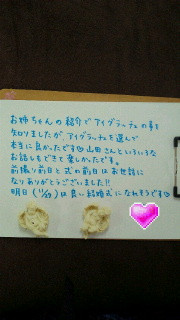 お姉ちゃんの紹介でアイグラッチェの事を
知りましたが、アイグラッチェを選んで
本当に良かったです♡山田さんといろいろな
お話しもできて楽しかったです。
前撮り前日と式の前日はお世話に
なりありがとうございました!!
明日(11/23)は良い結婚式になりそうです♡